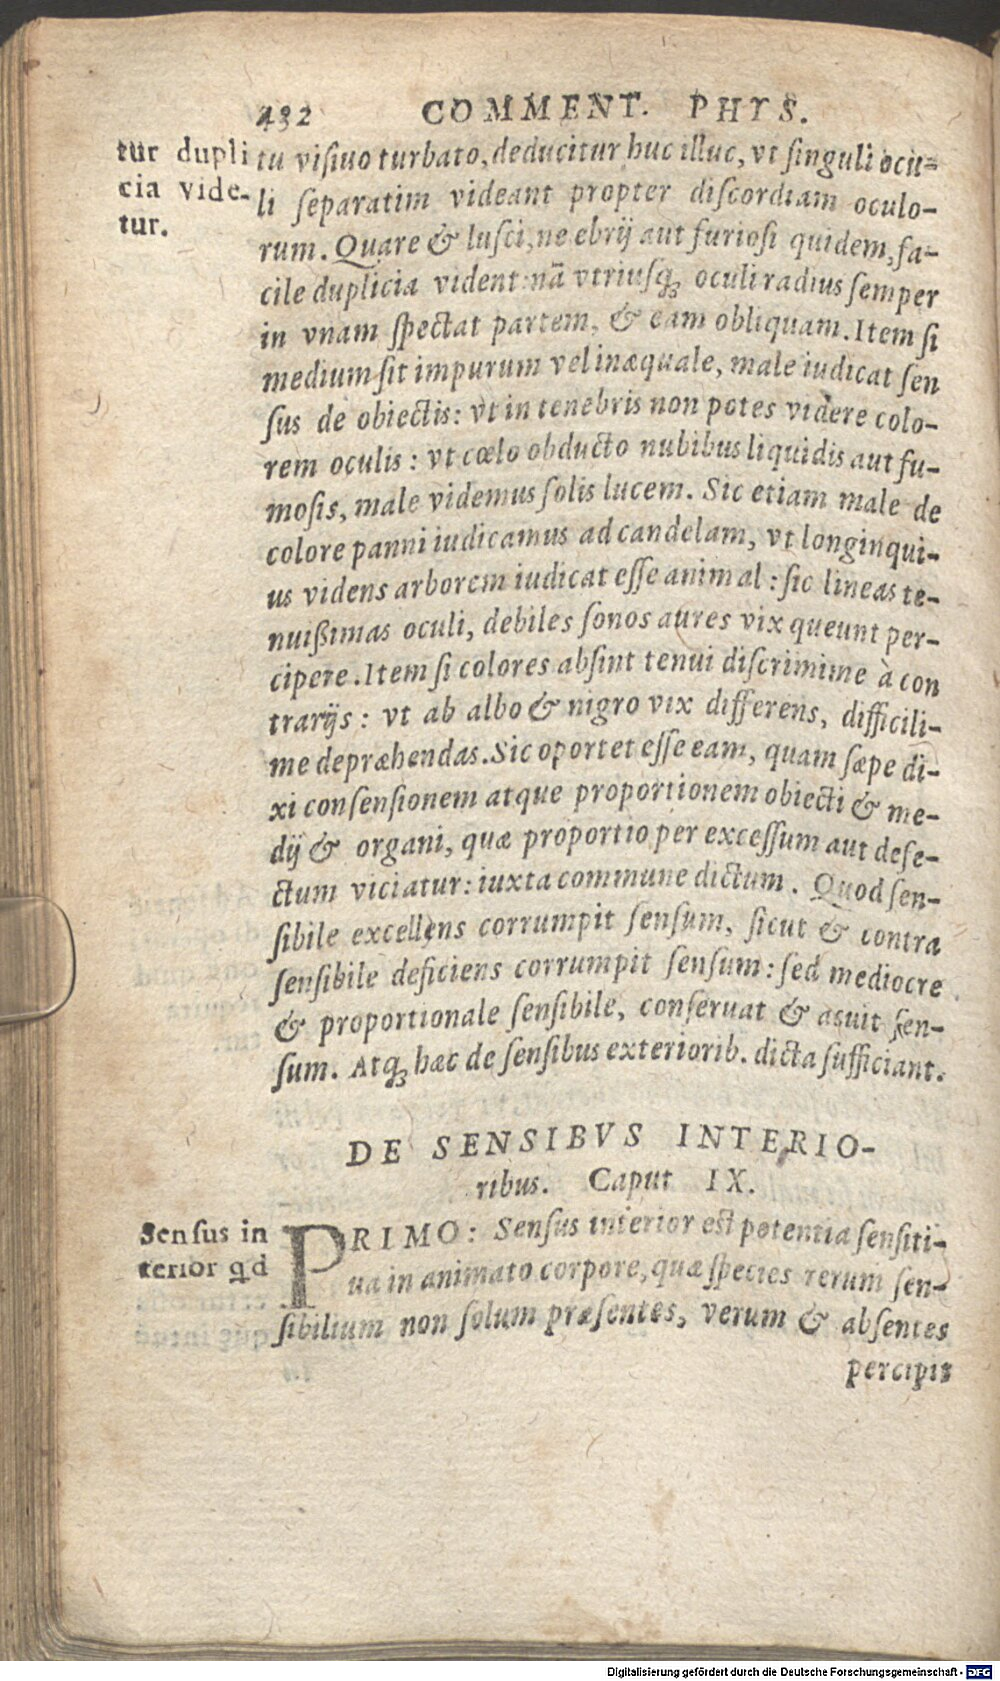 432 COMMENT. PHYS.
tur dupli
cia vide-
tur.
tu visiuo turbato, deducitur huc illuc, vt singuli ocu-
li separatim videant propter discordiam oculo-
rum. Quare & lusci, ne ebrij aut furiosi quidem, fa-
cile duplicia vident: nã vtriusq; oculi radius semper
in vnam spectat partem, & eam obliquam. Item si
medium sit impurum vel inæquale, male iudicat sen
sus de obiectis: vt in tenebris non potes videre colo-
rem oculis: vt cœlo obducto nubibus liquidis aut fu-
mosis, male videmus solis lucem. Sic etiam male de
colore panni iudicamus ad candelam, vt longinqui-
us videns arborem iudicat esse animal: sic lineas te-
nuißimas oculi, debiles sonos aures vix queunt per-
cipere. Item si colores absint tenui discrimime à con
trarijs: vt ab albo & nigro vix differens, difficili-
me depræhendas. Sic oportet esse eam, quam sæpe di-
xi consensionem atque proportionem obiecti & me-
dij & organi, quæ proportio per excessum aut defe-
ctum viciatur: iuxta commune dictum. Quod sen-
sibile excellens corrumpit sensum, sicut & contra
sensibile deficiens corrumpit sensum: sed mediocre
& proportionale sensibile, conseruat & asuit sen-
sum. Atq; hæc de sensibus exteriorib. dicta sufficiant.
DE SENSIBVS INTERIO-
ribus. Caput IX.
Sensus in
terior qd
PRIMO: Sensus interior est potentia sensiti-
ua in animato corpore, quæ species rerum sen-
sibilium non solum præsentes, verum & absentes
percipit
Digitalisierung gefördert durch die Deutsche Forschungsgemeinschaft - DFG